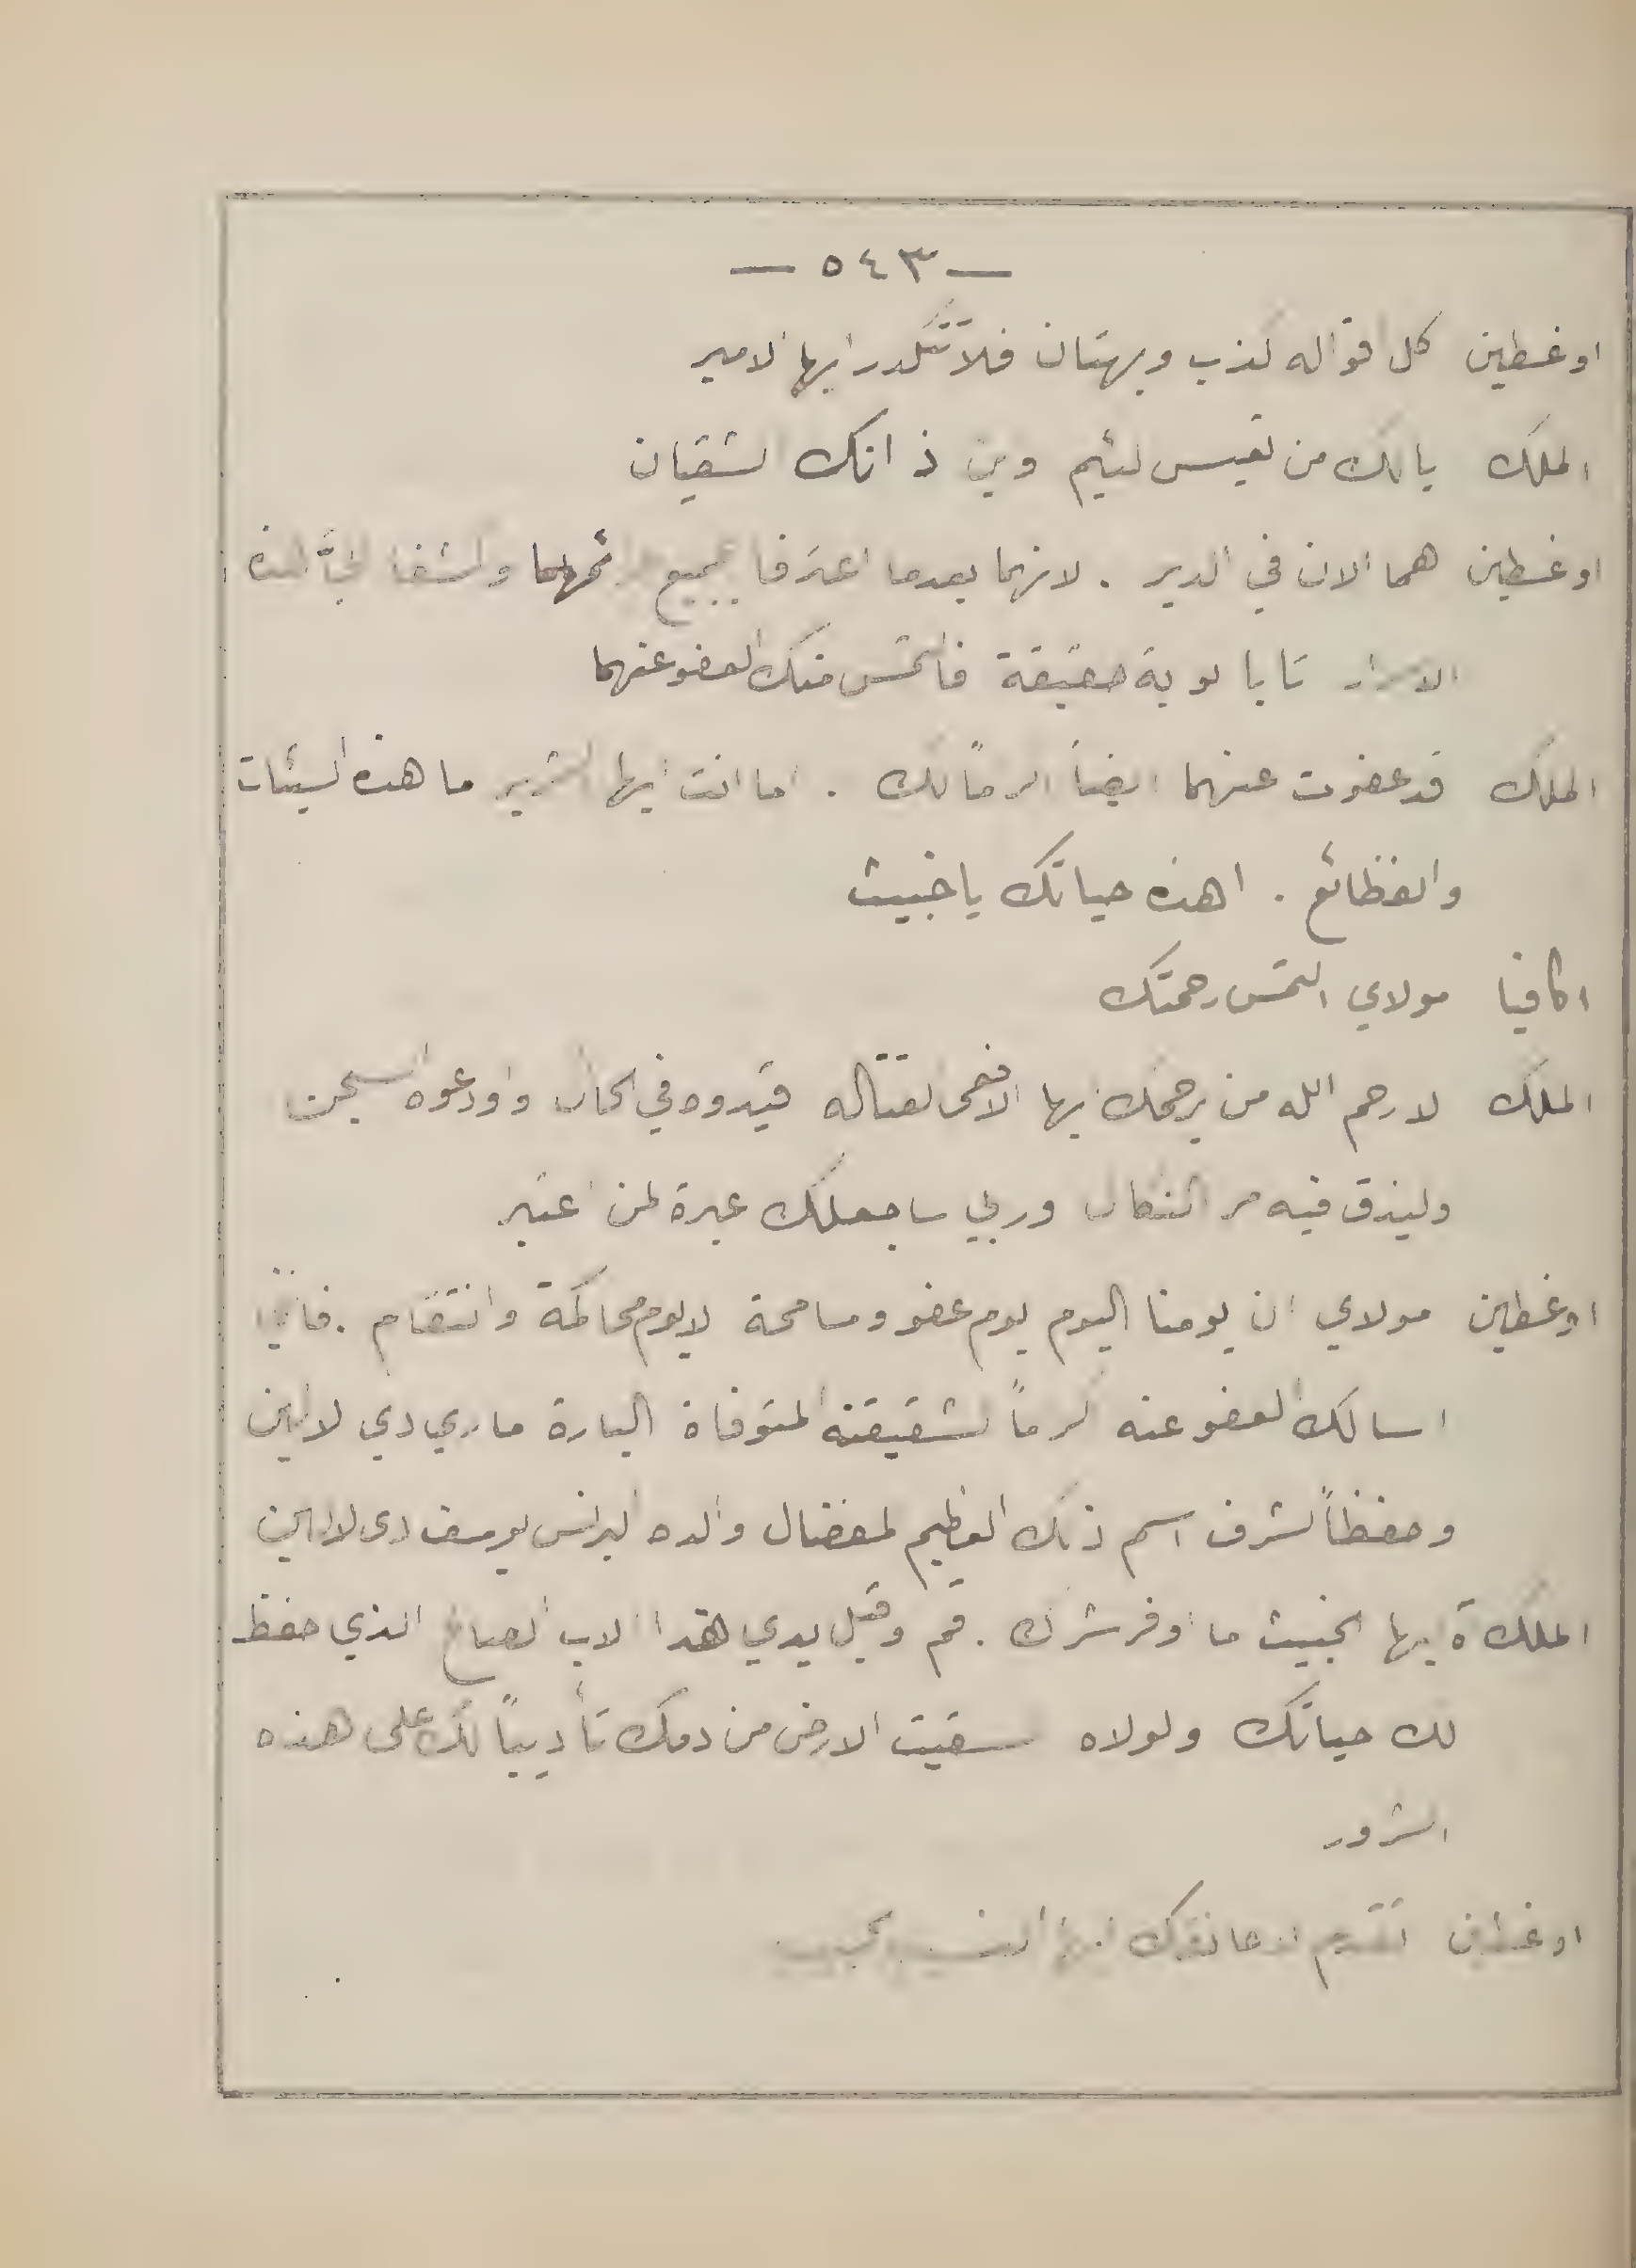 — ٥٤٣ —
اوغسطين كل اقواله كذب وبهتان فلا تتكدر ايها الامير
الملك يالك من تعيس لئيم واين ذانك الشقيان
اوغسطين هما الان في الدير . لانهما بعدما اعترفا بجميع اثمهما وكشفا لي هذه
الاسرار تابا توبة حقيقة فالتمس منك العفو عنهما
الملك قد عفوت عنهما ايضاً اكرماً لك . اما انت ايها الشرير ما هذه السيئات
والفظائع . اهذه حياتك يا خبيث
اكافيا مولاي التمس رحمتك
الملك لا رحم الله من يرحمك ايها الافعى القتاله قيدوه في الحال واودعوه السجن
وليذق فيه مر النكال وربي ساجعلك عبرة لمن اعتبر
اوغسطين مولاي ان يومنا اليوم يوم عفو ومسامحة لا يوم محاكمة وانتقام . فانني
اسالك العفو عنه اكرماً لشقيقته المتوفاة البارة ماري دي لابين
وحفظاً لشرف اسم ذلك العظيم المفضال والده البرنس يوسف دي لابين
الملك آه ايها الخبيث ما اوفر شرك . قم وقبل يدي هذا الاب الصالح الذي حفظ
لك حياتك ولولاه سقيت الارض من دمك تأديباً لك على هذه
الشرور
اوغسطين تقدم لاعانقك ايها